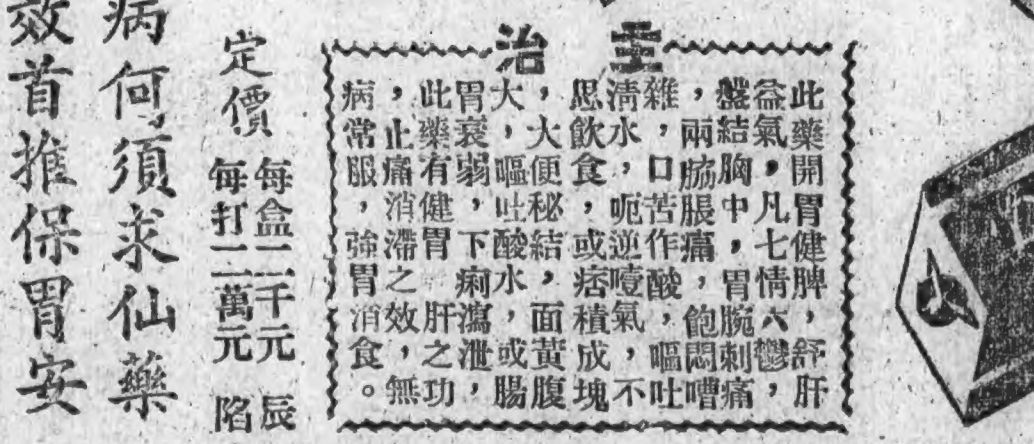 主治
此藥開胃健脾,舒肝
益氣,凡七情六鬱,
盤結胸中,胃腕刺痛
,兩脇脹痛,飽悶嘈
雜,口苦作酸,嘔吐
清水,呃逆噎氣,不
思飲食,或痞積成塊
,大便秘結,面黃腹
大,嘔吐酸水,或腸
胃衰弱,下痢瀉泄,
此藥有健胃 肝之功
,止痛消滯之效,無
病常服,強胃消食。
定價
每盒二千元 辰
每打二萬元 陷
病何須求仙藥
效首推保胃安